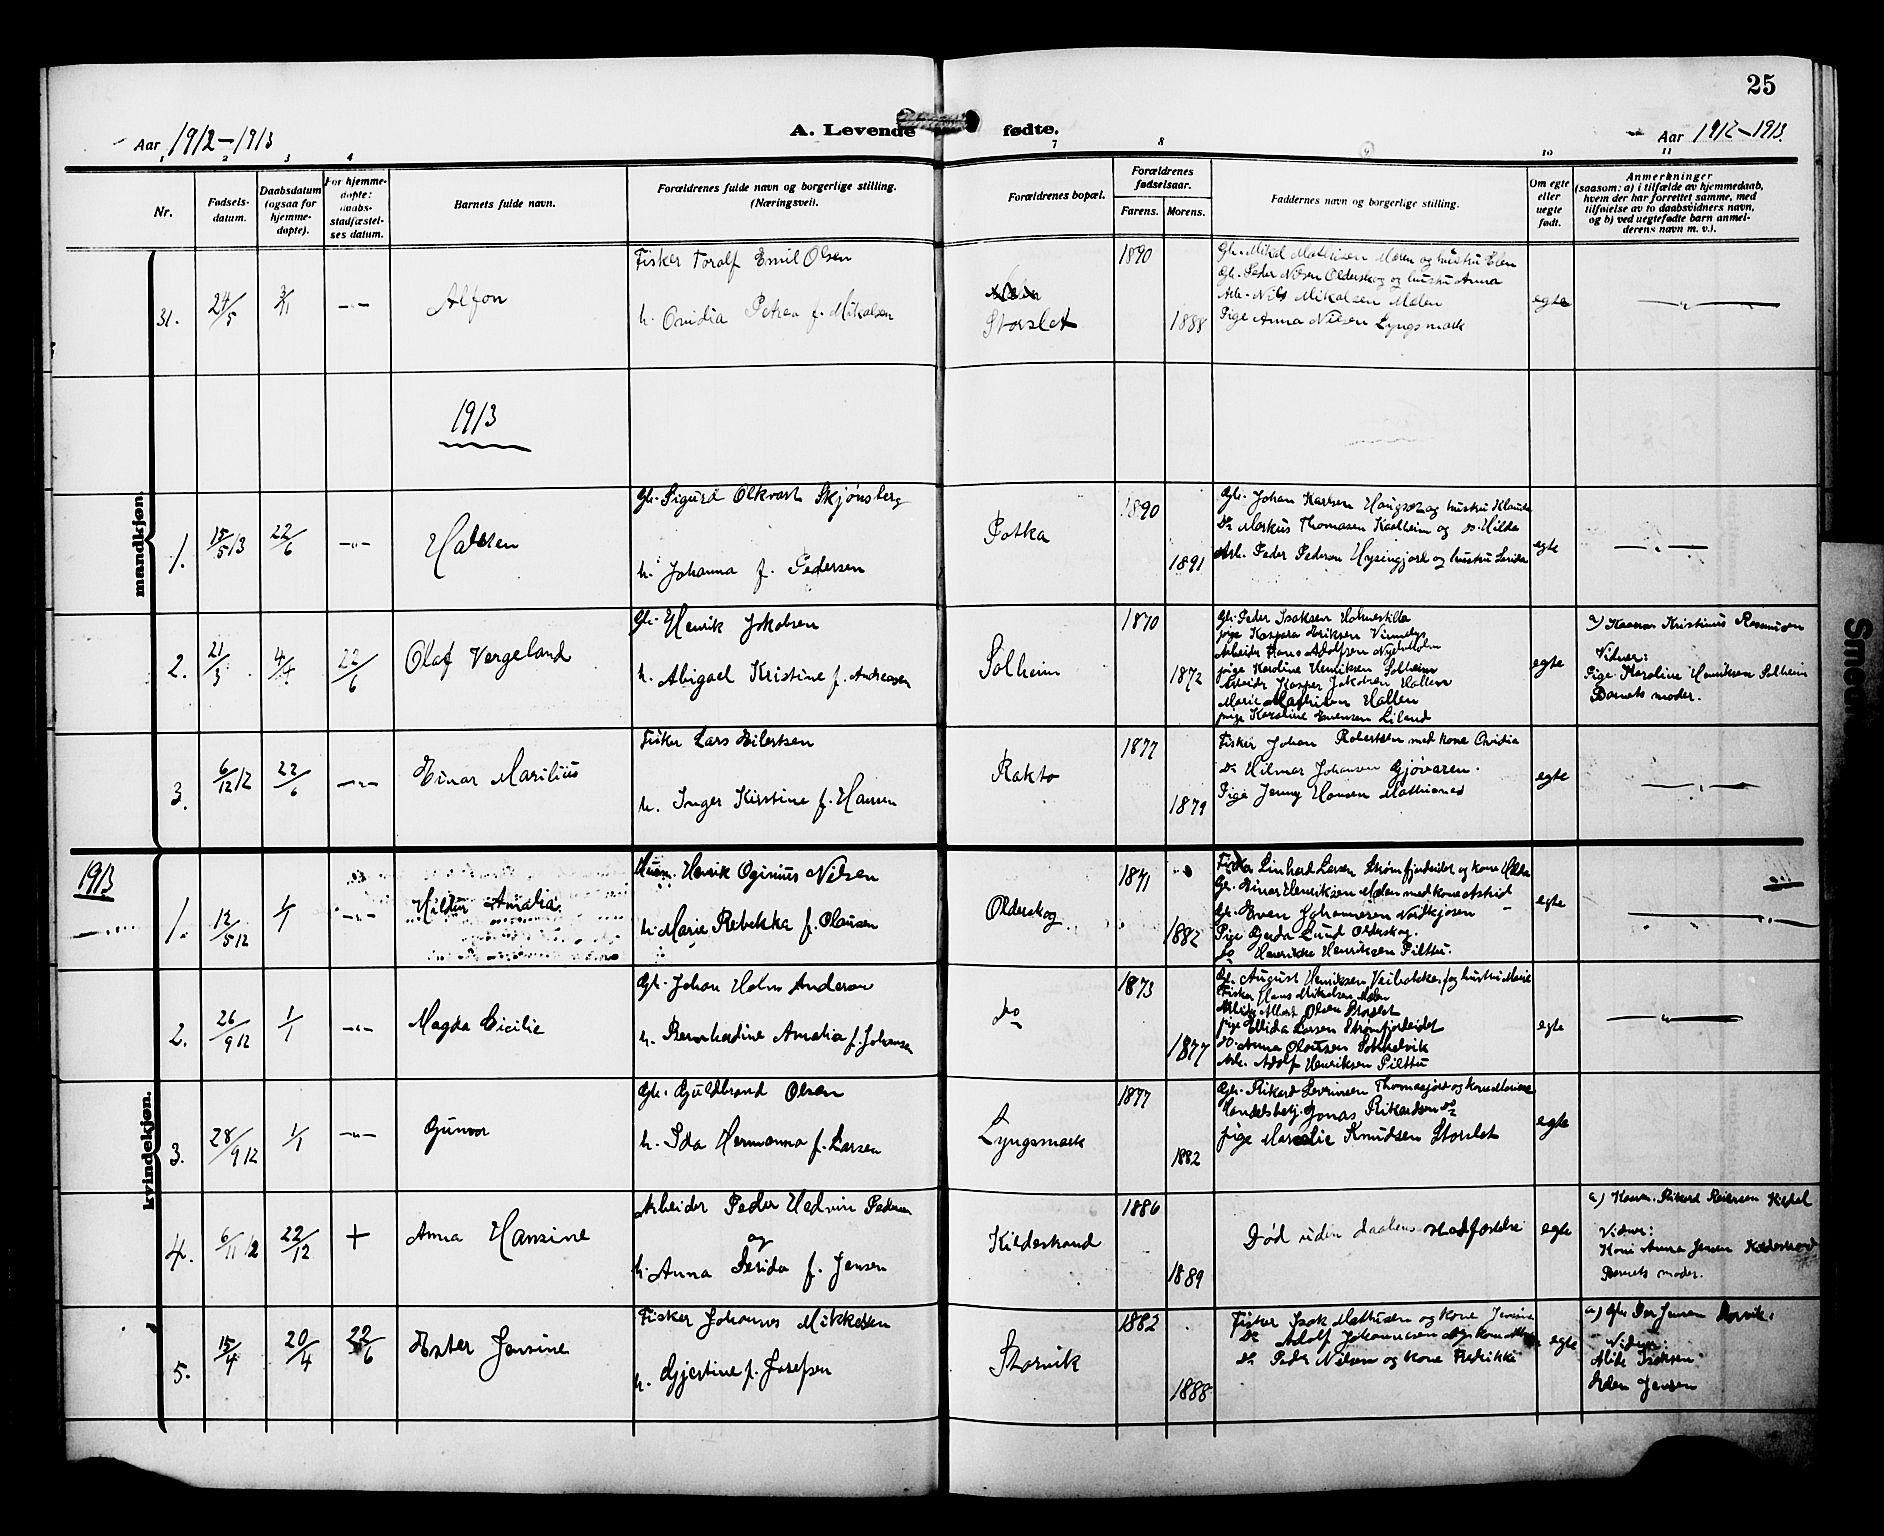 25
Aar 1912-1913
A. Levende fødte.
Aar 1912-1913.
1 2 3 4 7 8 10 11
Nr.
Fødsels-
datum.
Daabsdatum
(ogsaa for
hjemme-
døpte).
For hjemme-
døpte:
daabs-
stadfæstel-
ses datum.
Barnets fulde navn.
Forældrenes fulde navn og borgerlige stilling.
(Næringsvei).
Forældrenes bopæl.
Forældrenes
fødselsaar.
Farens. Morens.
Faddernes navn og borgerlige stilling.
Om egte
eller
uegte
født.
Anmerkninger
(saasom: a) i tilfælde av hjemmedaab,
hvem der har forrettet samme, med
tilføielse av to daabsvidners navn,
og b) ved uegtefødte barn anmel-
derens navn m. v.).
mandkjøn.
31.
24/5
3/11
Alfon
Fisker Toralf Emil Olsen
h. Ovidia Petrea f. Mikalsen
Storslet
1890
1888
Gbr. Mikal Mathisen Mælen og hustru Elen
Gbr. Peder Nilsen Olderskog og hustru Anna
Arb. Nils Mikalsen Mælen
Pige Anna Nilsen Lyngsmark
egte
1913
1.
15/5 13
22/6
Gbr. Sigurd Olkvart Skjønsberg
h. Johanna f. Pedersen
Potka
1890
1891
Gbr. Johan Karlsen og hustru
Do Markus Thomasen og do Hilda
Arb. Peder Pedersen og hustru
egte
2.
21/3
4/4
22/6
Olaf Vergeland
Gbr. Henrik Jakobsen
h. Abigael Kristine f. Andreasen
Solheim
1870
1872
Gbr. Peder Isaksen
pige Kaspara Eriksen
Arbeider Hans Adolfsen
pige Karoline Henriksen Solheim
Arbeider Kasper Jakobsen Hallen
Marie Mathisen Hallen
pige Karoline Evensen Liland
egte
a) Kristinus Rasmussen
Vidner:
Pige Karoline Henriksen Solheim
Barnets moder.
3.
6/12 12
22/6
Einar Marilius
Fisker Lars Eilertsen
h. Inger Kirstine f. Hansen
Rakto
1877
1879
Fisker Johan Robertsen med kone Ovidia
Do Hilmar Johansen Gjøvaren.
Pige Jenny Hansen
egte
kvindekjøn.
1913
1.
12/5 12
1/1
Hildur Amalia
Henrik Oginius Nilsen
h. Marie Rebekka f. Olausen
Olderskog
1871
1882
Fisker Linhard Larsen Strømfjordeidet og kone
Gb. Einar Henriksen Mælen med kone Astrid
Gb. Even Johannesen Nordkjosen
Pige Gerda Lund Olderskog.
do Henrikke Henriksen Pilttu.
egte
2.
26/9 12
1/1
Magda Cicilie
Gbr. Johan Holm Andersen
h. Bernhardine Amalia f. Johansen
do
1873
1877
Gb. August Henriksen og hustru Marie
Fisker Hans Mikalsen Mælen
Arbeider Albert Olsen Storslet
pige Ellida Larsen Strømfjordeidet
do. Anna Olausen Sokkelvik
Arb. Adolf Henriksen Pilttu
egte
3.
28/9 12
1/1
Gunvor
Gbr. Guldbrand Olsen
h. Ida Hermanna f. Larsen
Lyngsmark
1877
1882
Gbr. Rikard Sevrinsen Thomasjord og kone
Handelsbetj. Jonas Rikardsen do
pige Knudsen Storslet
egte
4.
6/11 12
22/12
+
Anna Hansine
Arbeider Peder Hedvin Pedersen
og
h. Anna Serida f. Jensen
Kildestrand
1886
1889
Død uden daabens stadfæstelse
egte
a) Rikard
Vidner:
Kone Anna Jensen Kildestrand
Barnets moder.
5.
15/4
20/4
22/6
Ester Jensine
Fisker Johannes Mikkelsen
h. Gjertine f. Josefsen
Storvik
1882
1888
Fisker Isak Mathisen og kone Jensine
Do Adolf Johannesen og kone
Do Peder Nilsen og kone Fredrikke
egte
a) Gbr Per Jensen Storvik.
Vidner:
Isaksen
Elen Jensen